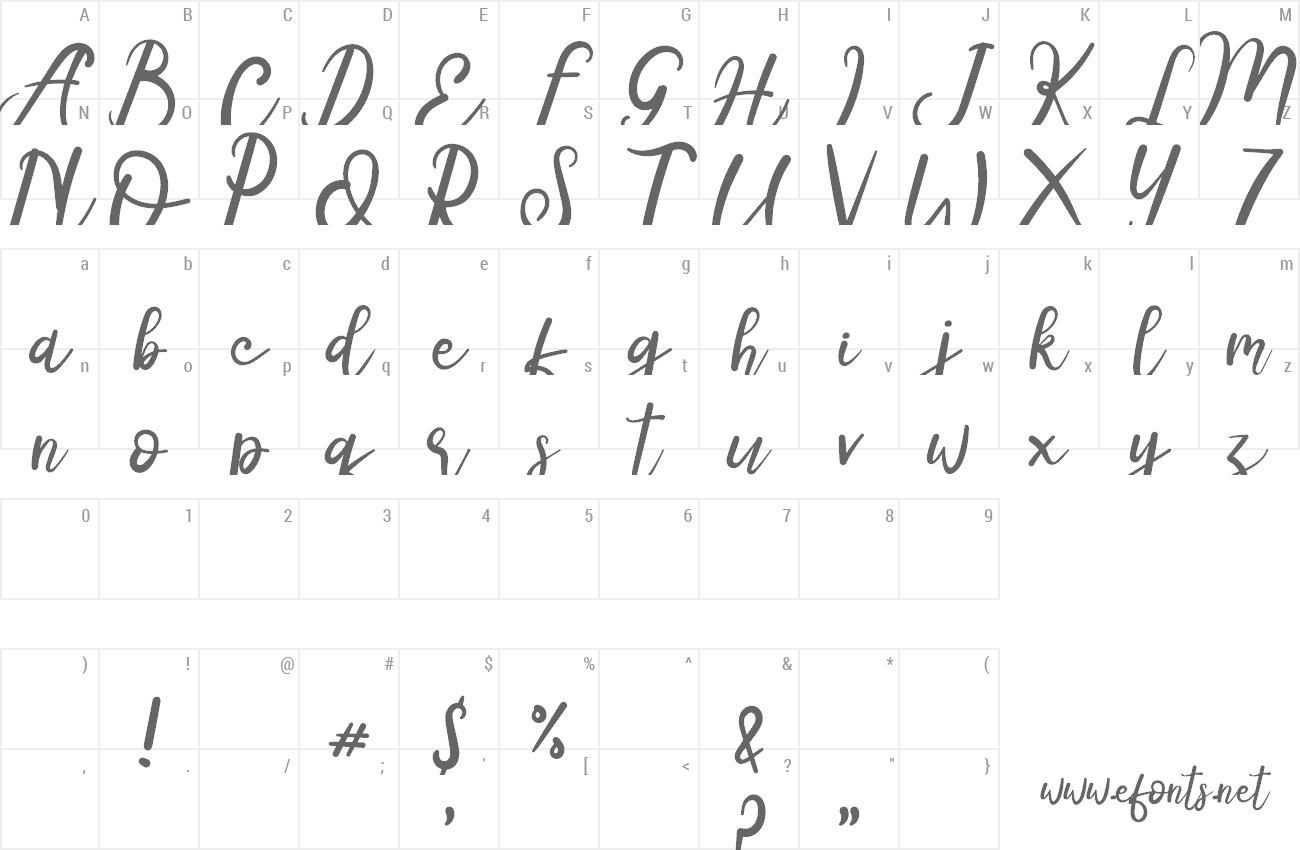 A B C D E F G H I J K L M
A B C D E F G H I J K L M
N O P Q R S T U V W X Y Z
N O P Q R S T U V W X Y Z
a b c d e f g h i j k l m
a b c d e f g h i j k l m
n o p q r s t u v w x y z
n o p q r s t u v w x y z
0 1 2 3 4 5 6 7 8 9
) ! @ # $ % ^ & * (
! # $ % &
, . / ; ' [ < ? " }
' ? "
www.efonts.net